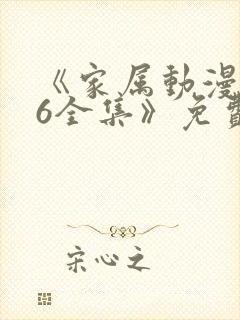 《家属動漫
6全集》免費
宋心之